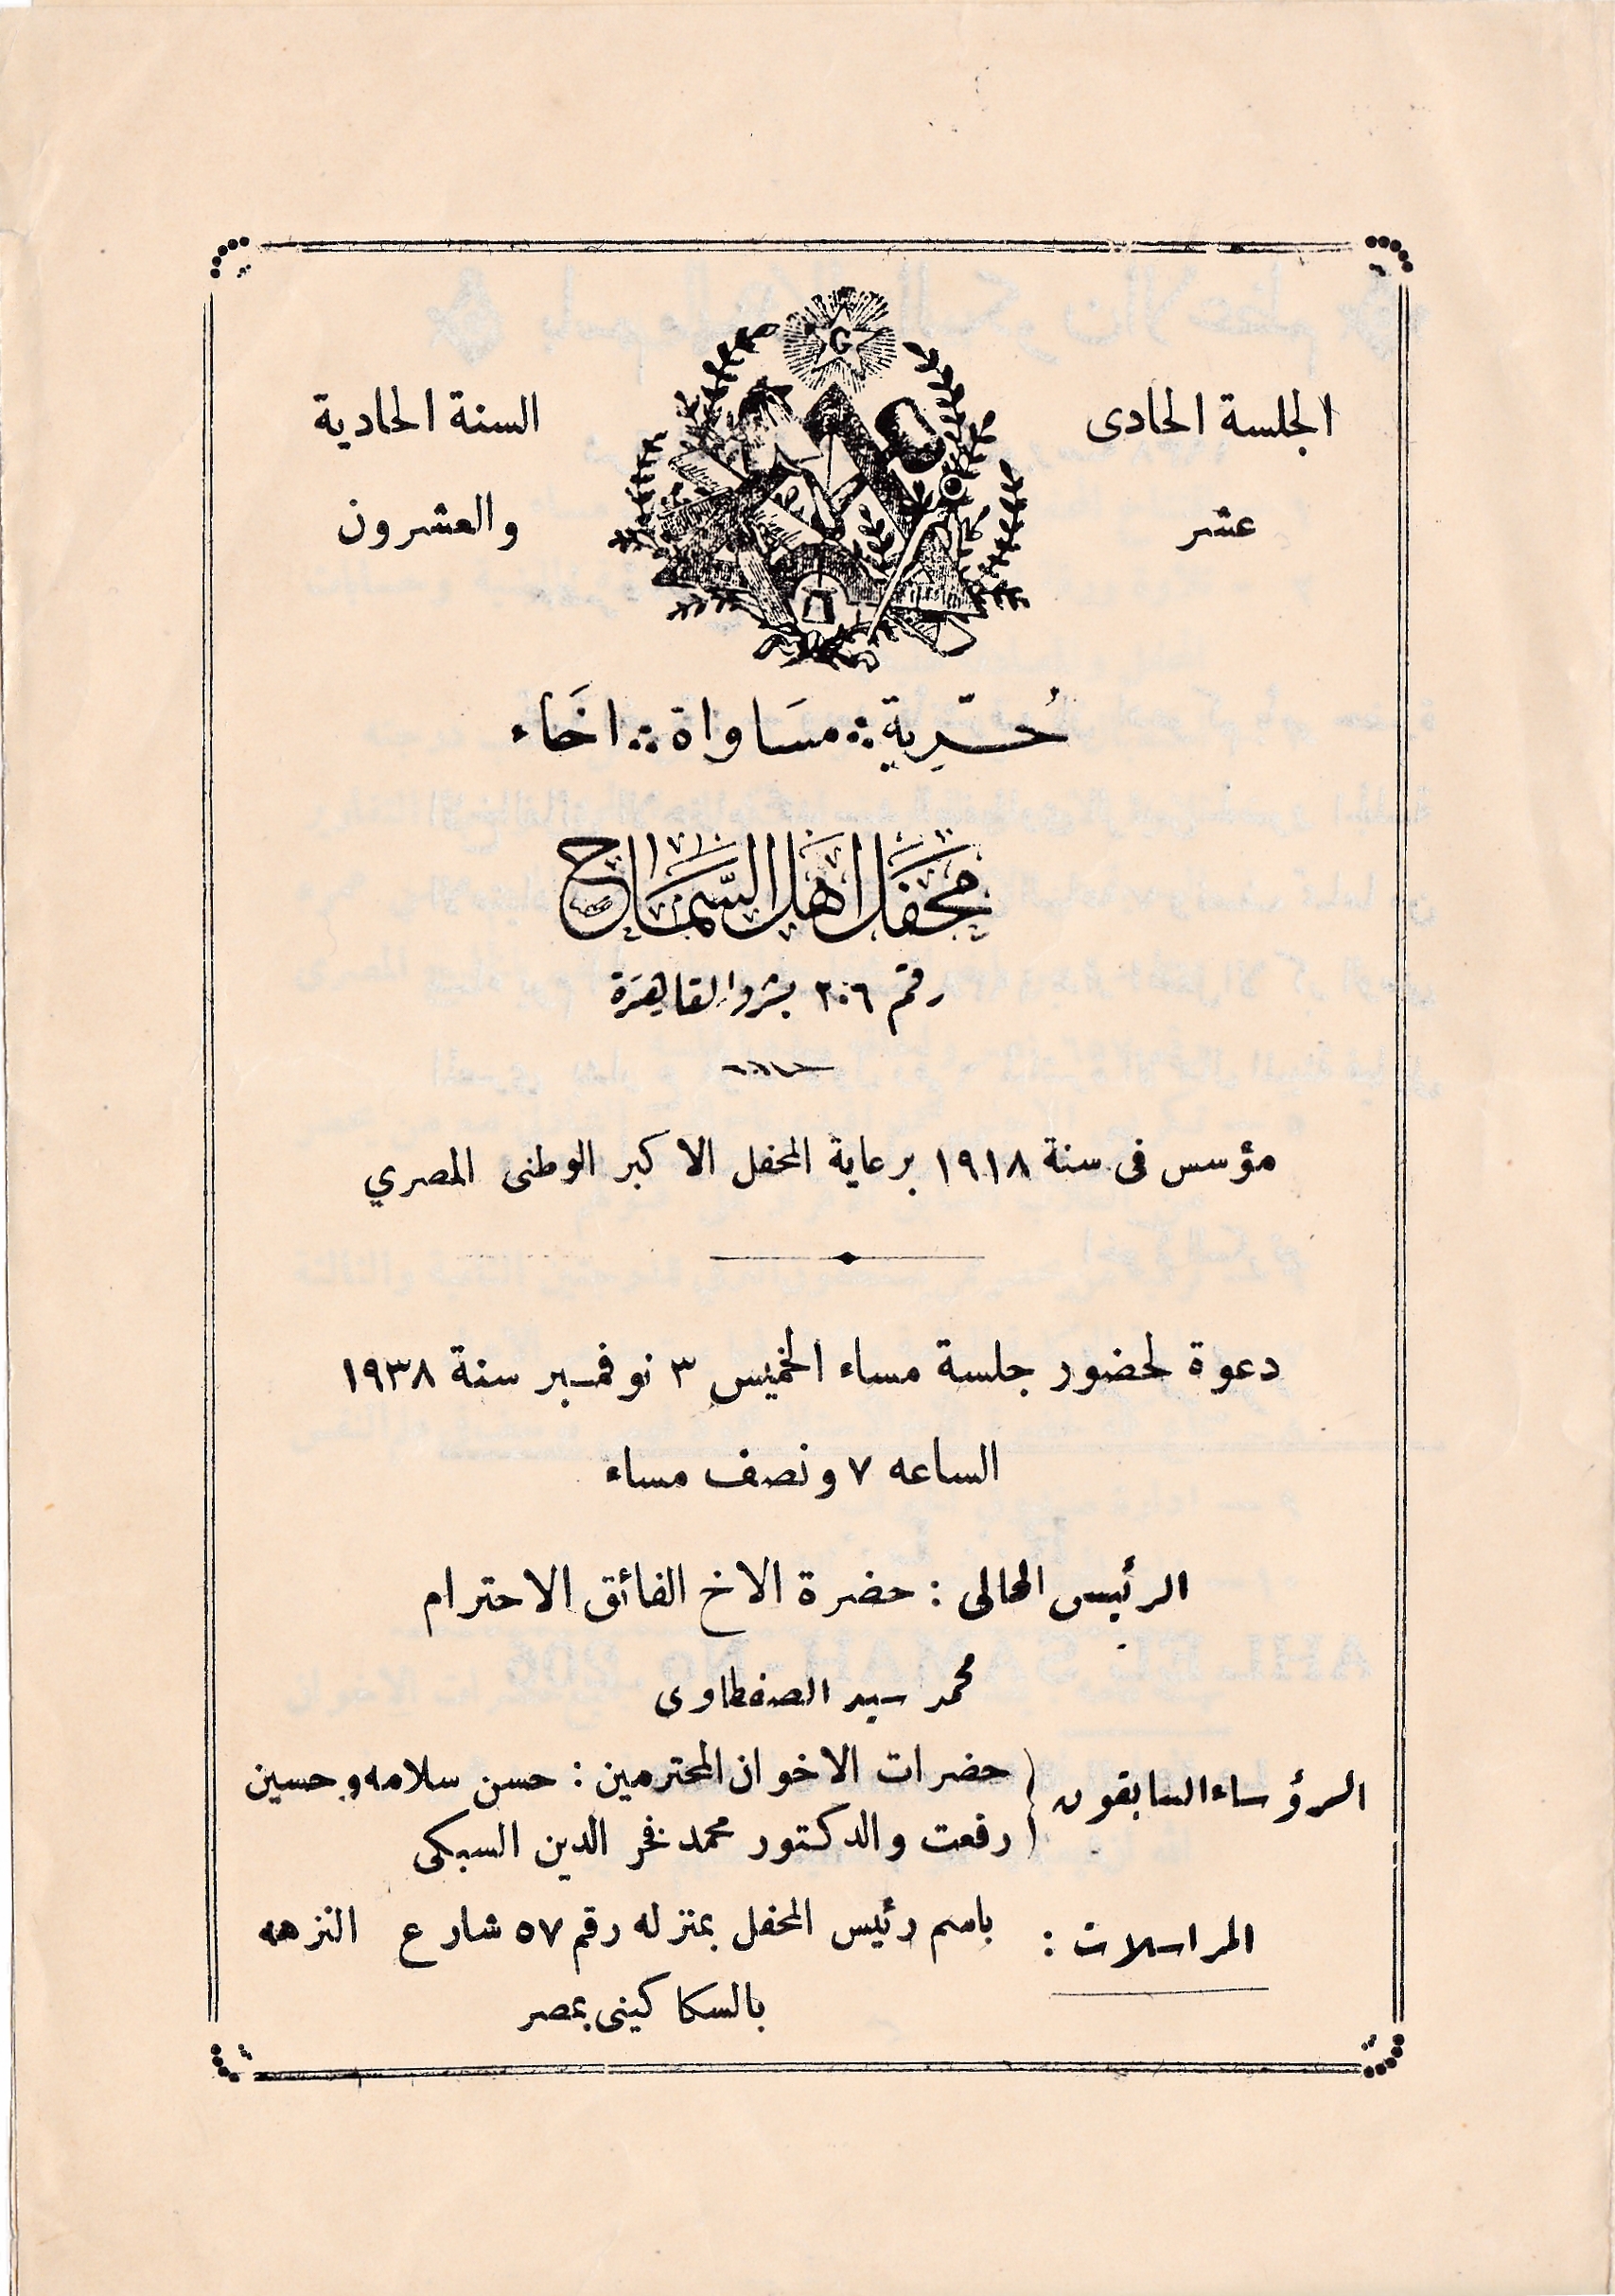 الجلسة الحادى
عشر
السنة الحادية
والعشرون
G
حُرِّية :: مسَاواة :: اخَاء
محفَل اهَل السَّمَاح
رقم ٢٠٦ بشرق القاهِرَة
مؤسس فى سنة ١٩١٨ برعاية المحفل الاكبر الوطنى المصري
دعوة لحضور جلسة مساء الخميس ٣ نوفمبر سنة ١٩٣٨
الساعه ٧ ونصف مساء
الرئيس الحالى : حضرة الاخ الفائق الاحترام
محمد سيد الصفطاوى
الرؤساء السابقون ( حضرات الاخوان المحترمين : حسن سلامه وحسين
رفعت والدكتور محمد فخر الدين السبكى
المراسلات : باسم رئيس المحفل بمنزله رقم ٥٧ شارع النزهه
بالسكاكينى بمصر